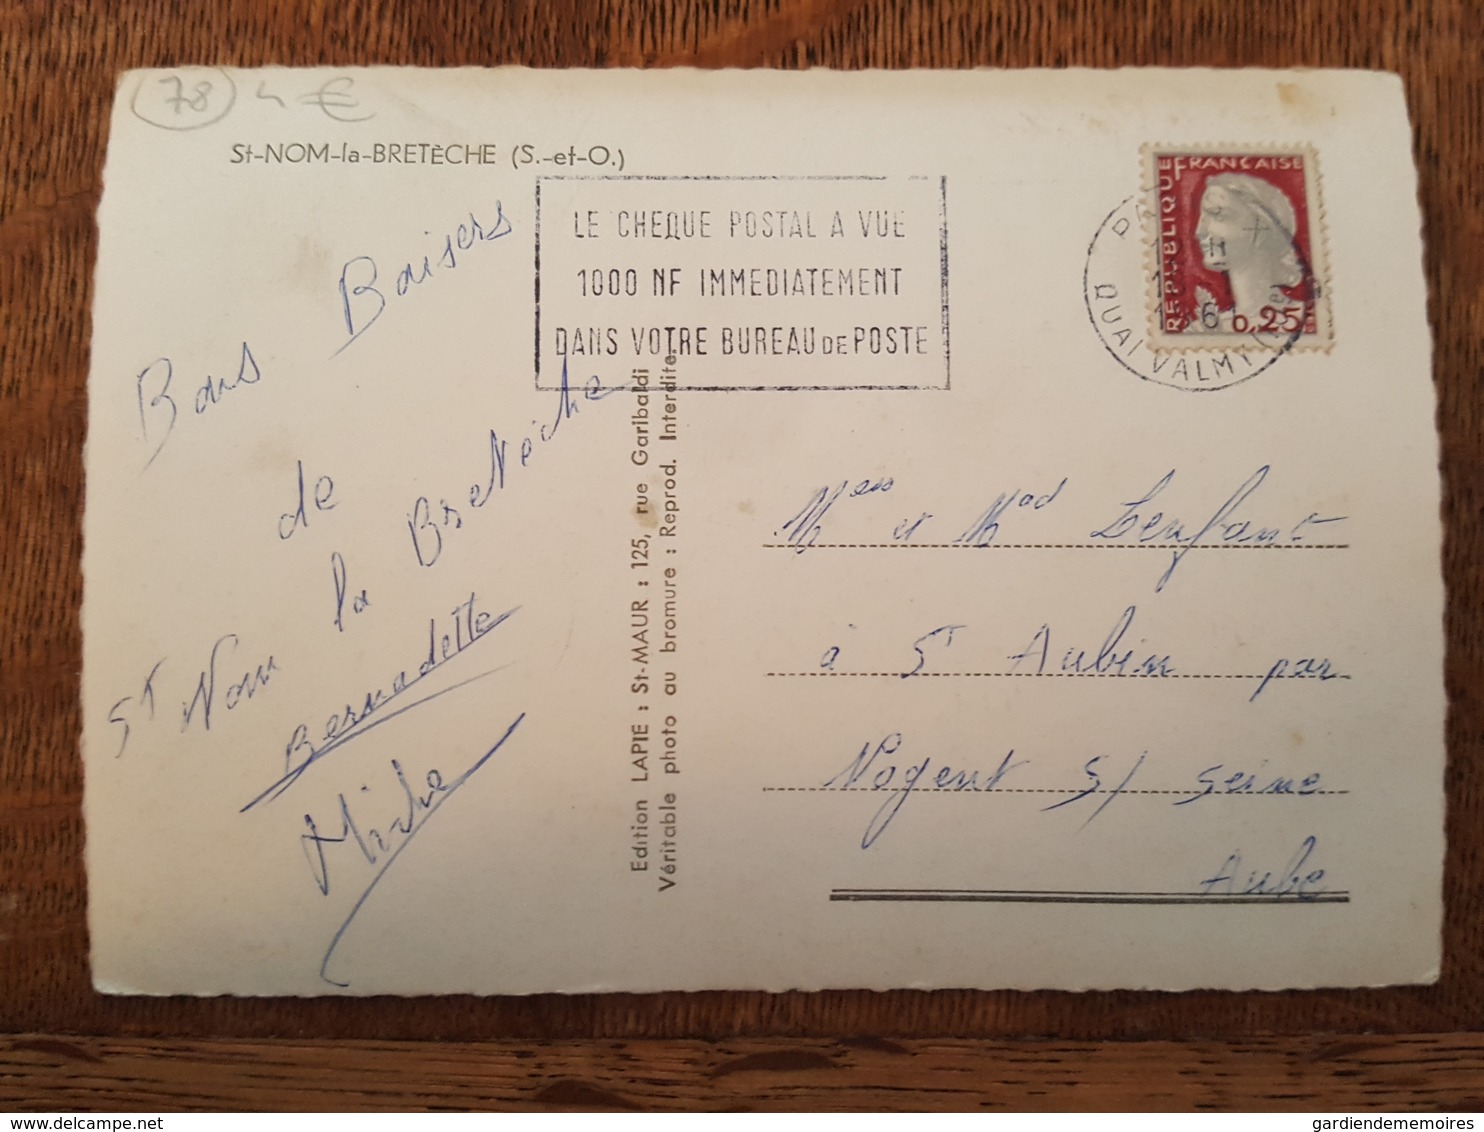 78 4 €
St-NOM-la-BRETÈCHE (S.-et-O.)
LE CHEQUE POSTAL A VUE
1000 NF IMMEDIATEMENT
DANS VOTRE BUREAU DE POSTE
REPUBLIQUE FRANÇAISE
0,25
QUAI VALMY
Bons Baisers
de
St Nom la Bretèche
Bernadette
Miche
Edition LAPIE : St-MAUR : 125, rue Garibaldi
Véritable photo au bromure : Reprod. Interdite.
et Mad Lenfant
à St Aubin par
Nogent s/ Seine
Aube
delcampe.net
gardiendememoires